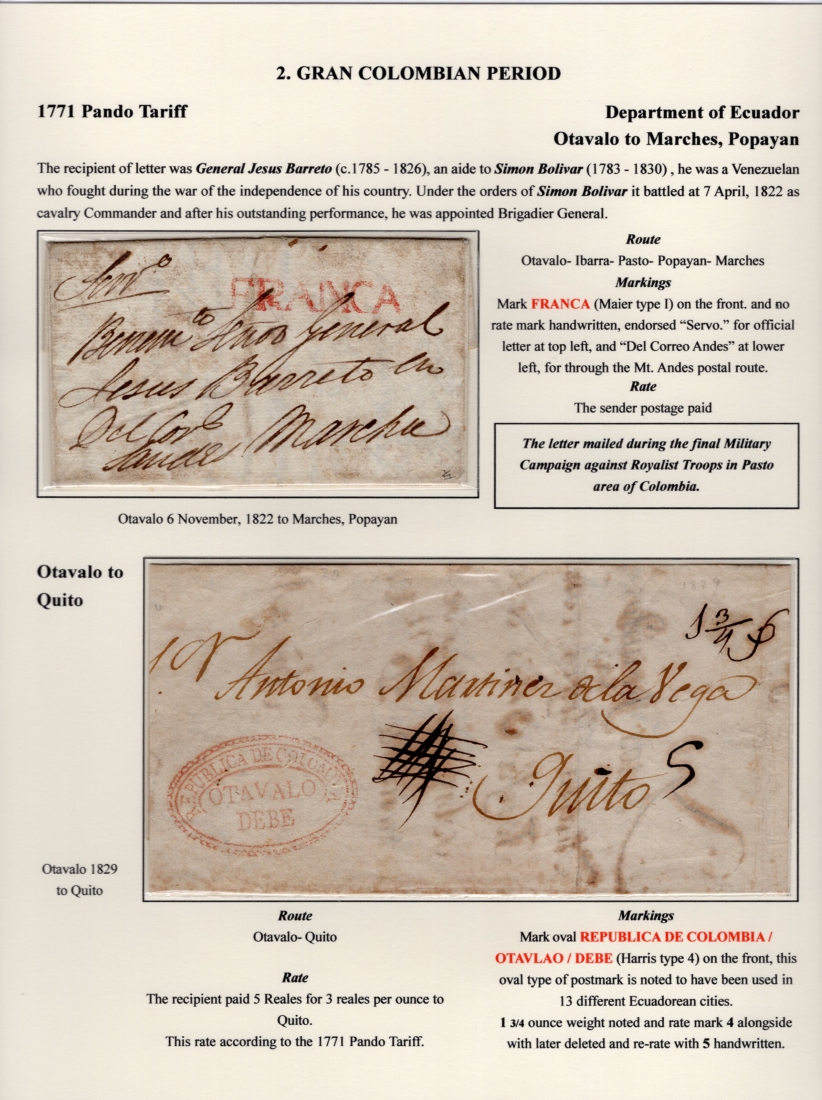 2. GRAN COLOMBIAN PERIOD
1771 Pando Tariff
Department of Ecuador
Otavalo to Marches, Popayan
The recipient of letter was General Jesus Barreto (c.1785 - 1826), an aide to Simon Bolivar (1783 - 1830) , he was a Venezuelan
who fought during the war of the independence of his country. Under the orders of Simon Bolivar it battled at 7 April, 1822 as
cavalry Commander and after his outstanding performance, he was appointed Brigadier General.
Servo
FRANCA
Señor General
Jesus Barreto en
Marcha
Route
Otavalo- Ibarra- Pasto- Popayan- Marches
Markings
Mark FRANCA (Maier type I) on the front. and no
rate mark handwritten, endorsed “Servo.” for official
letter at top left, and “Del Correo Andes” at lower
left, for through the Mt. Andes postal route.
Rate
The sender postage paid
The letter mailed during the final Military
Campaign against Royalist Troops in Pasto
area of Colombia.
Otavalo 6 November, 1822 to Marches, Popayan
Otavalo to
Quito
1829
1 3/4
Antonio Martinez de la Vega
Quito 5
REPUBLICA DE COLOMBIA
OTAVALO
DEBE
Otavalo 1829
to Quito
Route
Otavalo- Quito
Rate
The recipient paid 5 Reales for 3 reales per ounce to
Quito.
This rate according to the 1771 Pando Tariff.
Markings
Mark oval REPUBLICA DE COLOMBIA /
OTAVLAO / DEBE (Harris type 4) on the front, this
oval type of postmark is noted to have been used in
13 different Ecuadorean cities.
1 3/4 ounce weight noted and rate mark 4 alongside
with later deleted and re-rate with 5 handwritten.